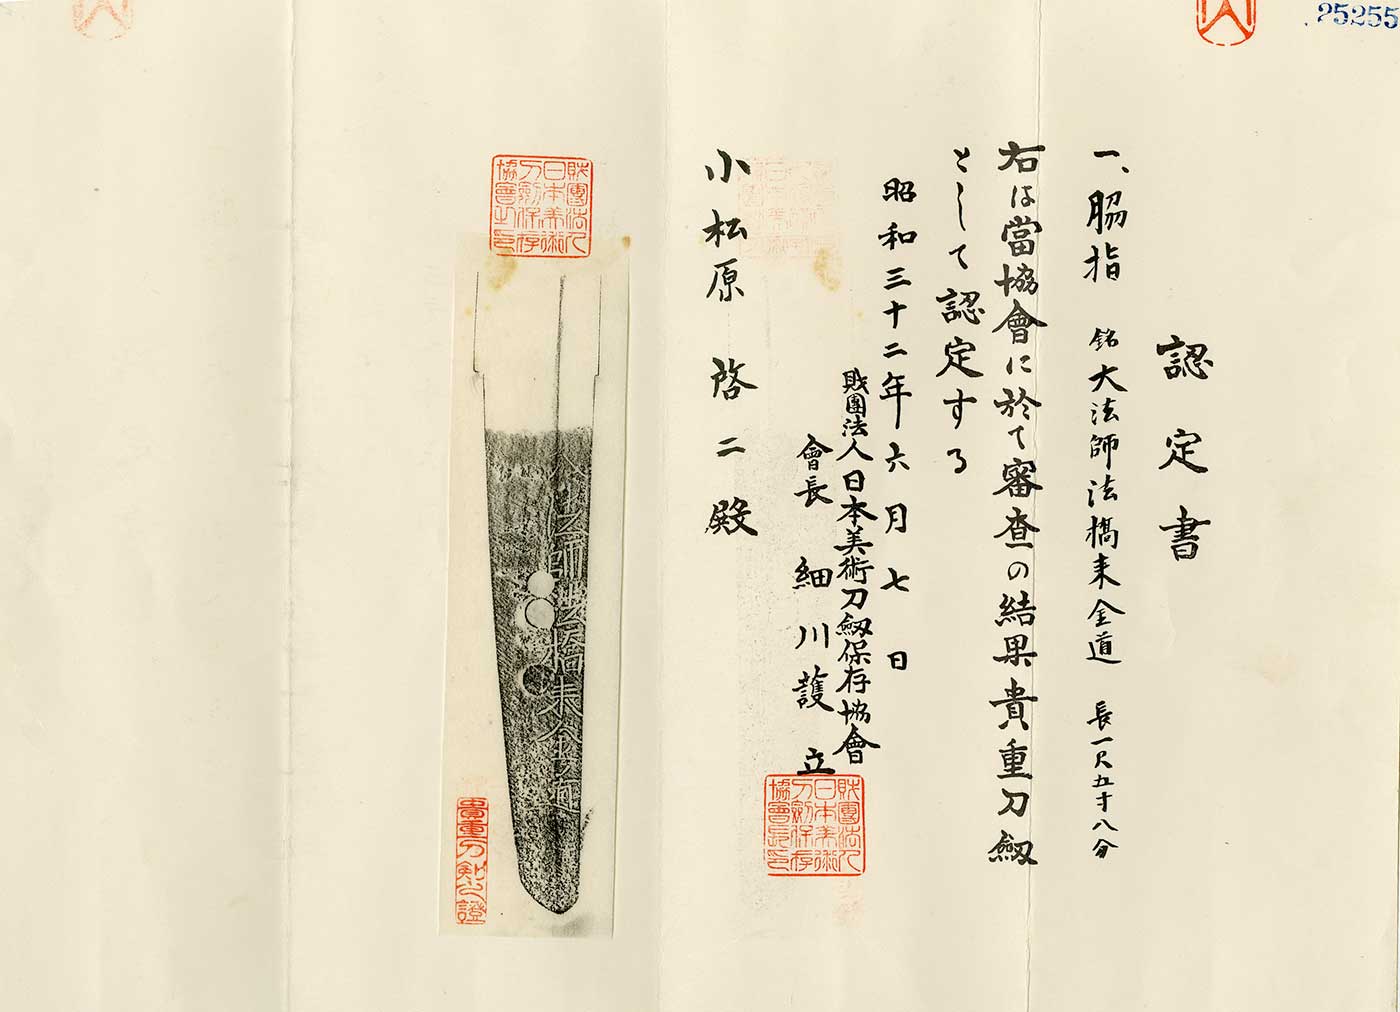 25255
認定書
一、脇指 銘大法師法橋来金道 長一尺五寸八分
右は當協會に於て審査の結果貴重刀劔
として認定する
昭和三十二年六月七日
財團法人日本美術刀劔保存協會
會長 細川護立
財團法人日本美術刀劍保存協會長印
小松原啓二殿
財團法人日本美術刀劍保存協會之印
大法師法橋来金道
貴重刀剣之證